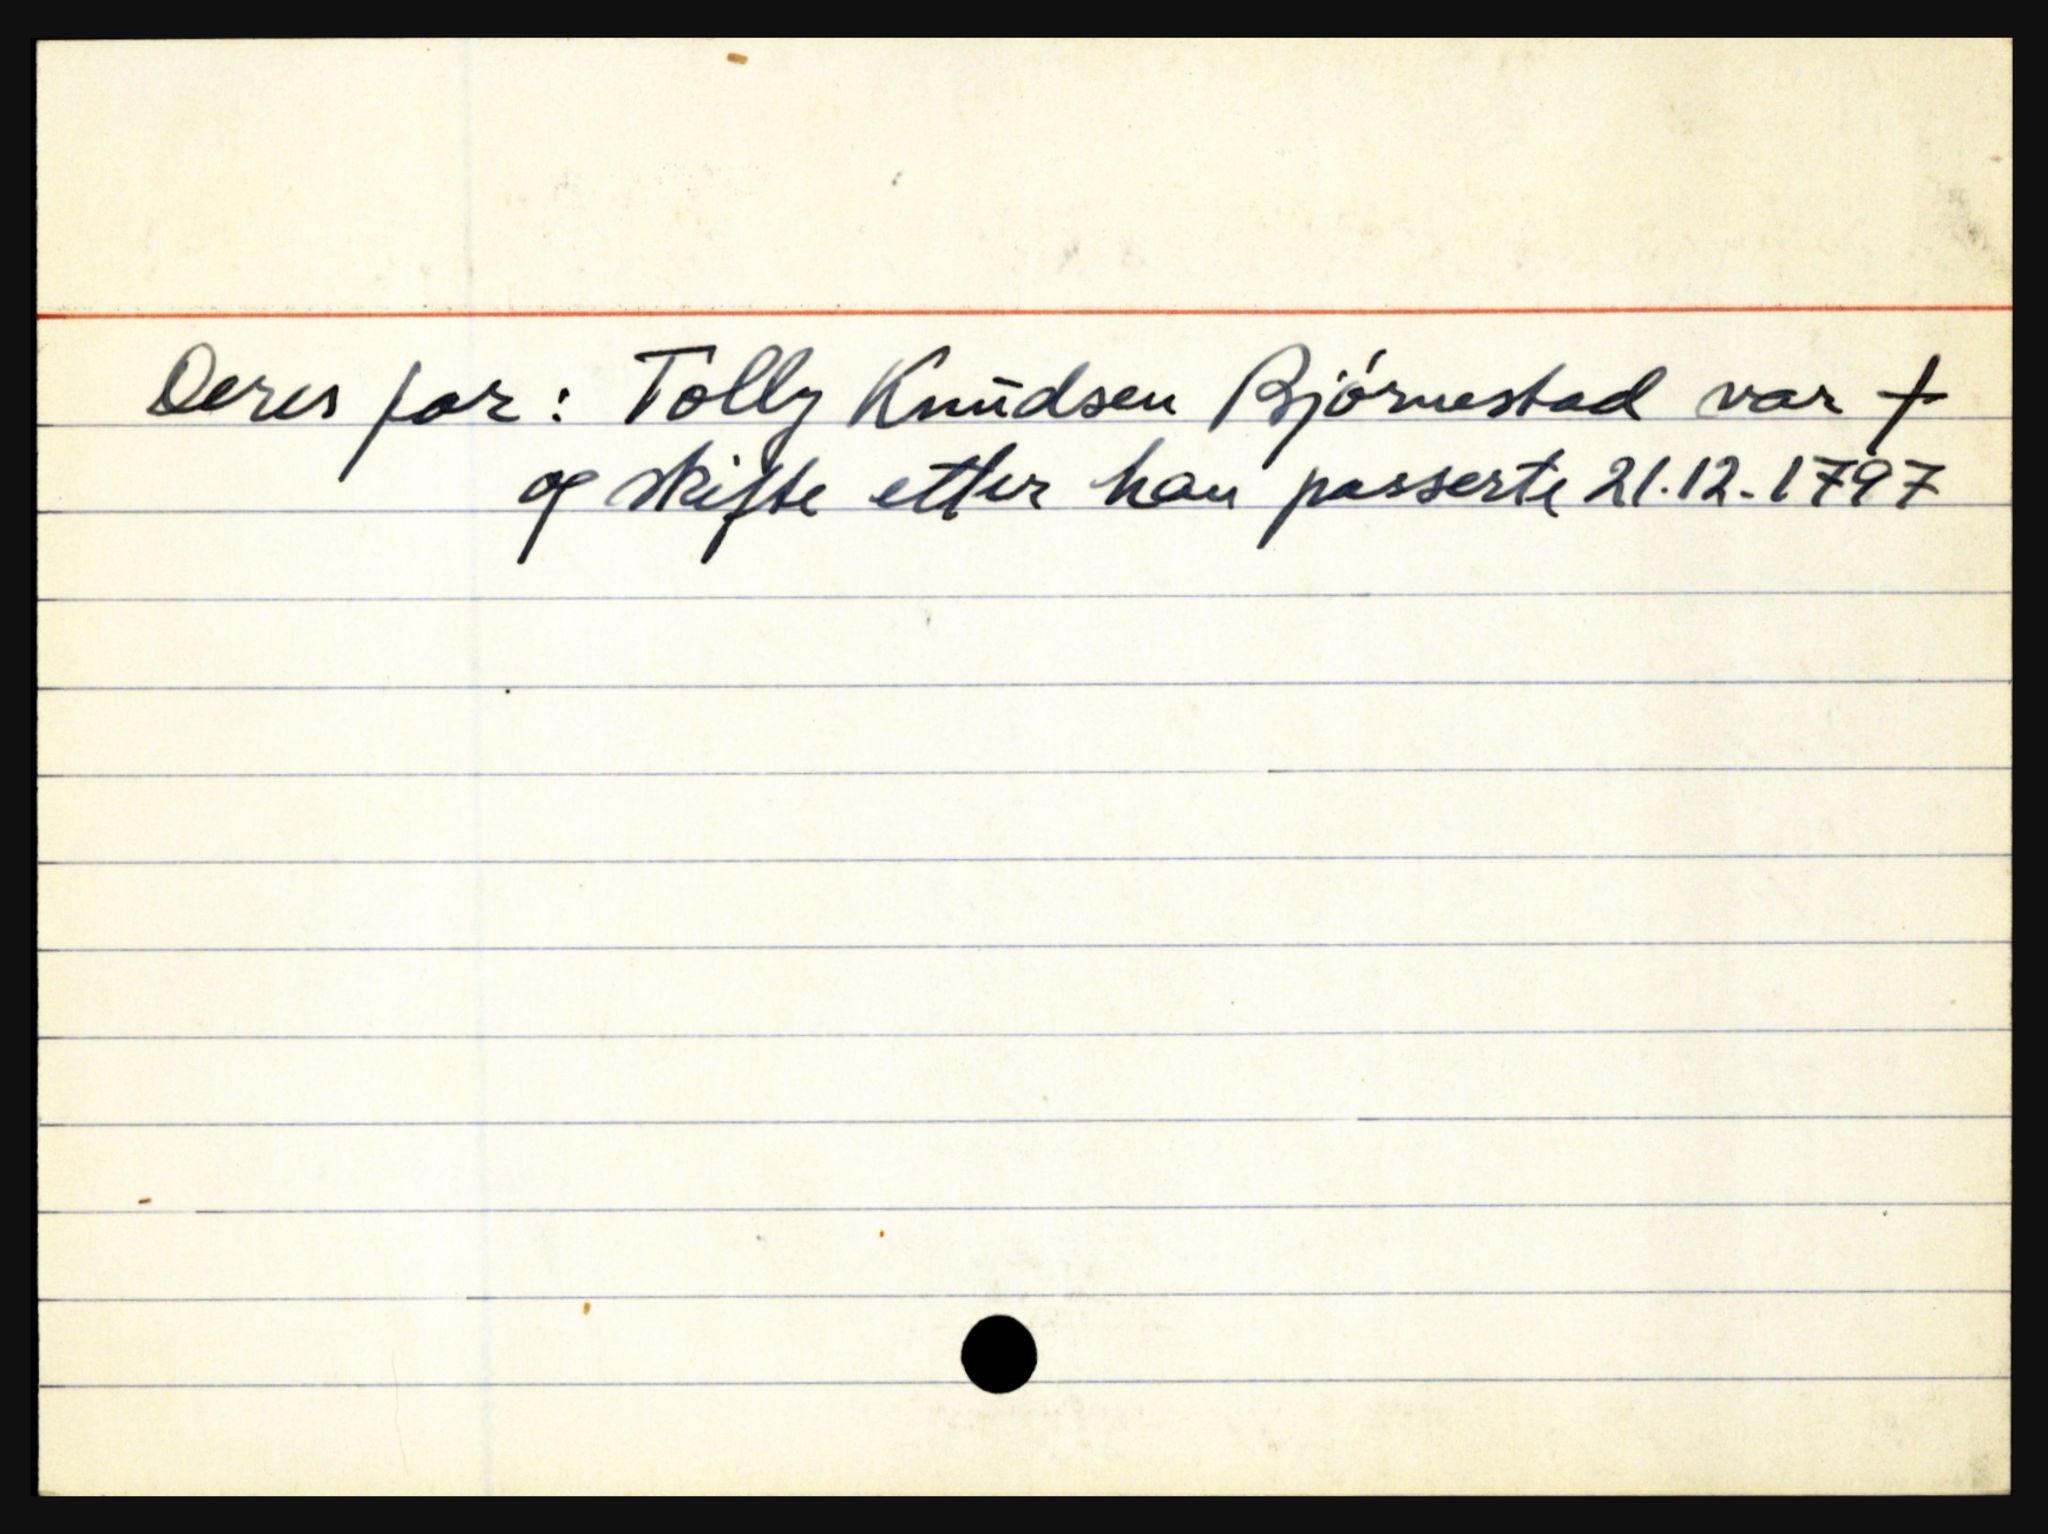 Deres far: Tolly Knudsen Bjørnestad var †
og skifte etter han passerte 21.12.1797